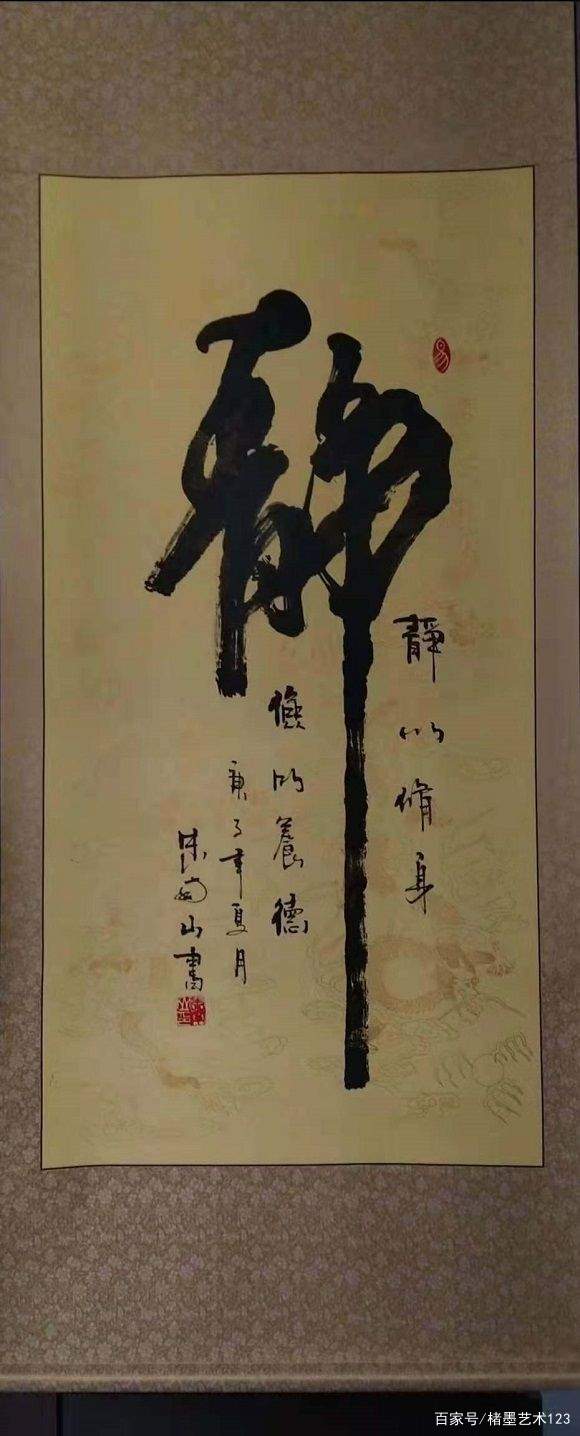 靜
靜以修身
儉以養德
庚子年夏月
朱南山書
百家号/楮墨艺术123